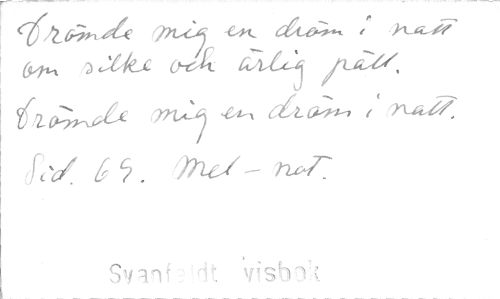 Drömde mig en dröm i natt
om silke och ärlig päll.
Drömde mig en dröm i natt.
Sid. 69. Mel-not.
Svanfeldt visbok